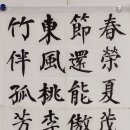 春榮夏茂
節還能傲
東風桃李
竹伴孤芳